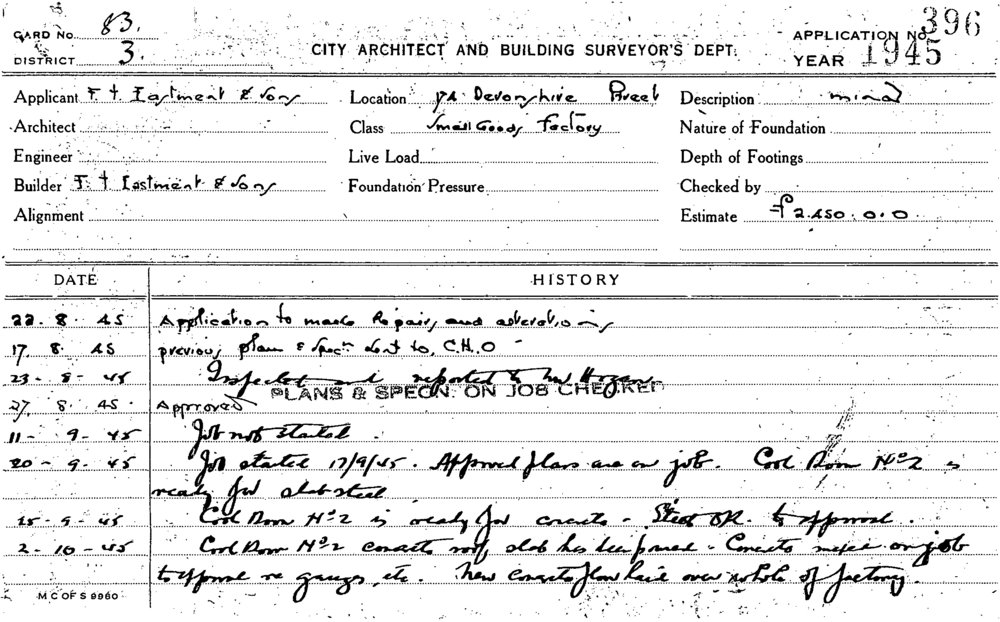 CARD No. 83.
DISTRICT 3.
CITY ARCHITECT AND BUILDING SURVEYOR'S DEPT.
APPLICATION No. 396
YEAR 1945
Applicant F. T. Eastment & Sons Location Devonshire Street Description minor
Architect Class Small Goods Factory Nature of Foundation
Engineer Live Load Depth of Footings
Builder F. T. Eastment & Sons Foundation Pressure Checked by
Alignment Estimate £2,450.0.0
DATE HISTORY
22. 8. 45 Application to make Repairs and alterations
17. 8. 45 previous plan & specn sent to C.H.O
23 - 8 - 45 Inspected and reported to Mr Hogan
PLANS & SPECN. ON JOB CHECKED
27. 8. 45. Approved
11 - 9 - 45 Job not started.
20 - 9 - 45 Job started 17/9/45. Approved plans are on job. Cool Room No 2 is
ready for slab steel
25 - 9 - 45 Cool Room No 2 is ready for concrete - Steel to approval.
2 - 10 - 45 Cool Room No 2 concrete roof slab has been poured - Concrete on job
to approval re gauge, etc. New concrete floor laid over whole of factory.
M C OF S 9960